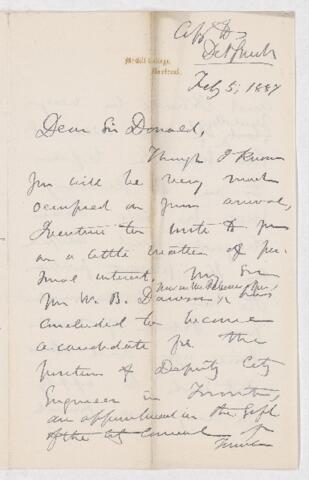 McGill College,
Montreal.
Feby 5, 1887
Dear Sir Donald,
Though I know
you will be very much
occupied on your arrival,
I venture to write to you
on a little matter of per-
sonal interest. My son
Mr W. B. Dawson, has
concluded to become
a candidate for the
position of Deputy City
Engineer in Toronto,
an appointment in the gift
of the city council of